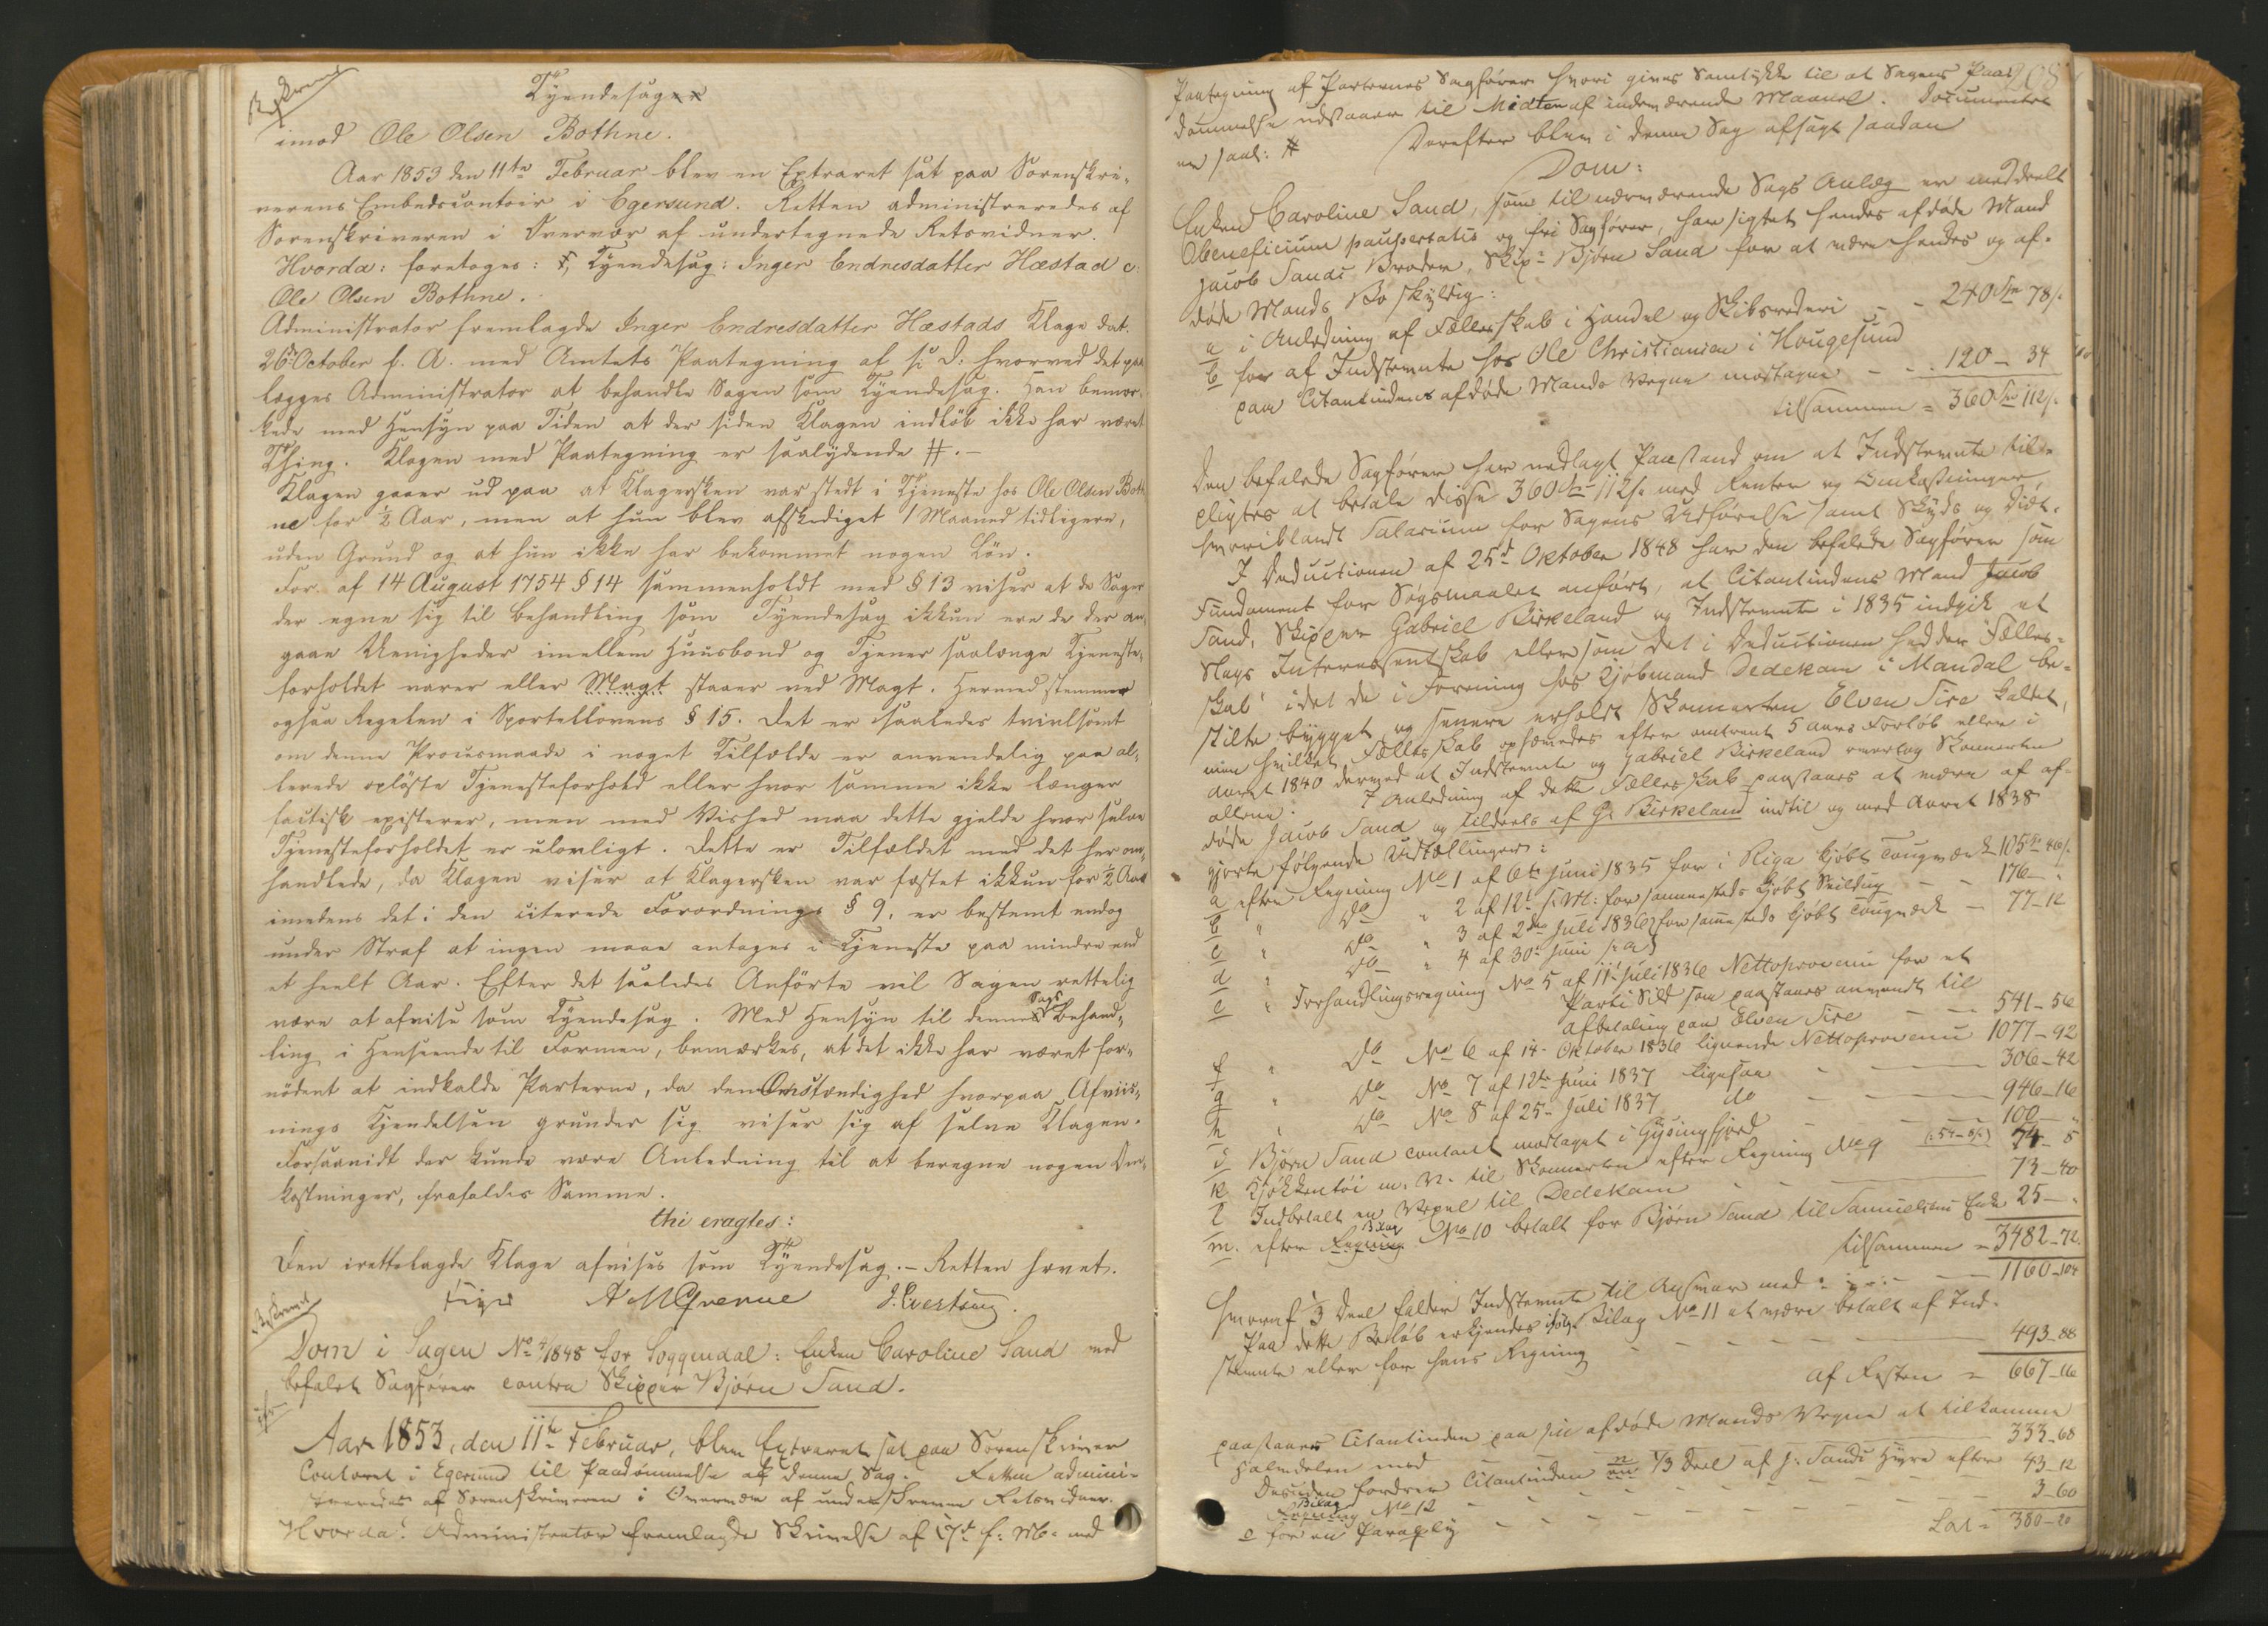 Beskreven
Tyendesag
imod Ole Olsen Bothne.
Aar 1853 den 11te Februar blev en Extraret sat paa Sorenskri-
verens Embedscontoir i Egersund. Retten administreredes af
Sorenskriveren i Overvær af undertegnede Retsvidner.
Hvorda: foretoges: Tyendesag: Inger Endresdatter Hæstad c:
Ole Olsen Bothne.
Administrator fremlagde Inger Endresdatter Hæstads Klage dat.
26de October f. A. med Amtets Paategning af s: D: hvorved det paa
lægges Administrator at behandle Sagen som Tyendesag. Han bemær-
kede med Hensyn paa Tiden at der siden Klagen indløb ikke har været
Thing. Klagen med Paategning er saalydende #.-
Klagen gaaer ud paa at Klagersken var stedt i Tjeneste hos Ole Olsen Both
ne for ½ Aar, men at hun blev afskediget 1 Maaned tidligere,
uden Grund og at hun ikke har bekommet nogen Løn.
For. af 14 August 1754 § 14 sammenholdt med § 13 viser at de Sager
der egne sig til Behandling som Tyendesag ikkun ere de der an-
gaae Uenigheder imellem Huusbond og Tjener saalænge Tjeneste-
forholdet varer eller Magt staaer ved Magt. Hermed stemmer
ogsaa Regelen i Sportellovens § 15. Det er saaledes tvivlsomt
om denne Procesmaade i noget Tilfælde er anvendelig paa al-
lerede opløste Tjenesteforhold eller hvor samme ikke længer
factisk existerer, men med Vished maa dette gjelde hvor selve
Tjenesteforholdet er ulovligt. Dette er Tilfældet med det her om-
handlede, da Klagen viser at Klagersken var fæstet ikkun for ½ Aar
imedens det i den citerede Forordnings § 9, er bestemt endog
under Straf at ingen maae antages i Tjeneste paa mindre end
et heelt Aar. Efter det saaledes Anførte vil Sagen rettelig
være at afvise som Tyendesag. Med Hensyn til dennes Sags Behand-
ling i Henseende til Formen, bemærkes, at det ikke har været for-
nødent at indkalde Parterne, da den Omstændighed hvorpaa Afviis-
nings Kjendelsen grunder sig viser sig af selve Klagen.
Forsaavidt der kunde være Anledning til at beregne nogen Om-
kostninger, frafaldes Samme.
thi eragtes:
Den irettelagde Klage afvises som Tyendesag.- Retten hævet.
Beskrevet
Dom i Sagen No 4/1848 for Soggendal: Enken Caroline Sand med
befalet Sagfører contra Skipper Bjørn Sand.
Aar 1853, den 11te Februar, blev Extraret sat paa Sorenskriver
Contoret i Egersund til Paadømmelse af denne Sag. Retten admini-
streredes af Sorenskriveren i Overvær af underskrevne Retsvidner.
Hvorda: Administrator fremlagde Skrivelse af 17de f: M: med
208
Paategning af Parternes Sagfører hvori gives Samtykke til at Sagens Paa-
dømmelse udstaaer til Midten af indeværende Maaned. Documentet
er saal: # Derefter blev i denne Sag afsagt saadan
Dom:
Enken Caroline Sand, som til nærværende Sags Anlæg er meddeelt
Obeneficium paupertatis og fri Sagfører, har sigtet hendes afdøde Mand
Jacob Sands Broder, Skip: Bjørn Sand for at være hendes og af-
døde Mands Bo skyldig:
a i Anledning af Fællesskab i Handel og Skibsrederi - - 240 Spd 78 s.
b for af Indstevnte hos Ole Christiansen i Hougesund
paa Citantindens afdøde Mands Vegne modtagne - - 120 - 34
tilsammen = 360 Spd 112 s.
Den befalede Sagfører har nedlagt Paastand om at Indstevnte til-
pligtes at betale disse 360 Spd 112 s. med Renter og Omkostninger,
hvoriblandt Salarium for Sagens Udførelse samt Skyds og Diæt.
I Deductionen af 25de Oktober 1848 har den befalede Sagfører som
Fundament for Søgsmaalet anført, at Citantindens Mand Jacob
Sand, Skipper Gabriel Birkeland og Indstevnte i 1835 indgik et
Slags Interessentskab eller som det i Deductionen hedder "Fælles-
skab" idet de i Forening hos Kjøbmand Dedekam i Mandal be-
stilte bygget og senere erholdt Skonnerten Elven Sire kaldet,
men hvilket Fællesskab ophævedes efter omtrent 5 Aars Forløb eller i
Aaret 1840 dermed at Indstevnte og Gabriel Birkeland overtog Skonnerten
allene. I Anledning af dette Fællesskab paastaaes at være af af-
døde Jacob Sand og tildeels af G: Birkeland indtil og med Aaret 1838
gjorte følgende Udtællinger:
a efter Regning No 1 af 6te Juni 1835 for i Riga kjøbt Tougværk 105 Spd 46 s.
b " Do " 2 af 12te s. M: for sammesteds kjøbt Seildug - - 176 - "
c " Do " 3 af 2den Juli 1836 } for sammesteds kjøbt Tougværk - 77-12
d " Do " 4 af 30te Juni s: A }
e " Forhandlingsregning No 5 af 11te Juli 1836 Nettoprovenu for et
Parti Sild som paastaaes anvendt til
Afbetaling paa Elven Sire - - 541-56
f " Do No 6 af 14de Oktober 1836 lignende Nettoprovenu 1077-92
g " Do No 7 af 12te Juni 1837 ligesaa - - 306-42
h " Do No 8 af 25de Juli 1837 do - - 946-16
i Bjørn Sand contant modtaget i Gysingfjord - - 100 - "
k Kjøkkentøi m. V. til Skonnerten efter Regning No 9 (:54-5:) 74-5
l Indbetalt en Vexel til Dedekam - - 73-40
m. efter Regning Bilag No 10 betalt for Bjørn Sand til Samuelsens Enke 25 - "
tilsammen = 3482-72.
Hvoraf 1/3 Deel falder Indstevnte til Ansvar med - - 1160-104
Paa dette Beløb erkjendes ifølge Bilag No 11 at være betalt af Ind-
stevnte eller for hans Regning - - 493-88
af Resten = 667-16
paastaaer Citantinden paa sin afdøde Mands Vegne at tilkomme
Halvdelen med - - 333-68
Desuden fordrer Citantinden en 1/3 Deel af J: Sands Hyre efter
Regning Bilag No 12 - - 43-12
e for en Paraply - - 3-60
Lat = 380-20